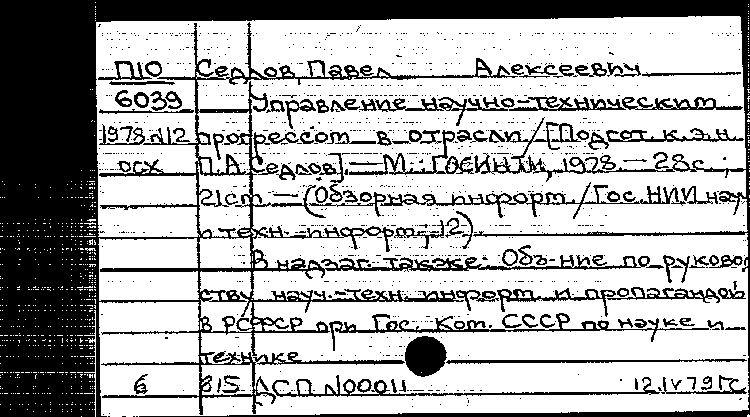 П10 Седлов, Павел Алексеевич
6039 Управление научно-техническим
1978 N12 прогрессом в отрасли / [Подгот. к.э.н.
осх П.А. Седлов]. — М.: ГОСИНТИ, 1978. — 28с.;
21см. — (Обзорная информ. / Гос. НИИ науч.
и техн. информ.; 12).
В надзаг. также: Объ-ние по руковод
ству науч.-техн. информ. и пропагандой
в РСФСР при Гос. Ком. СССР по науке и
технике
6 815 ДСП N00011 12.IV 79